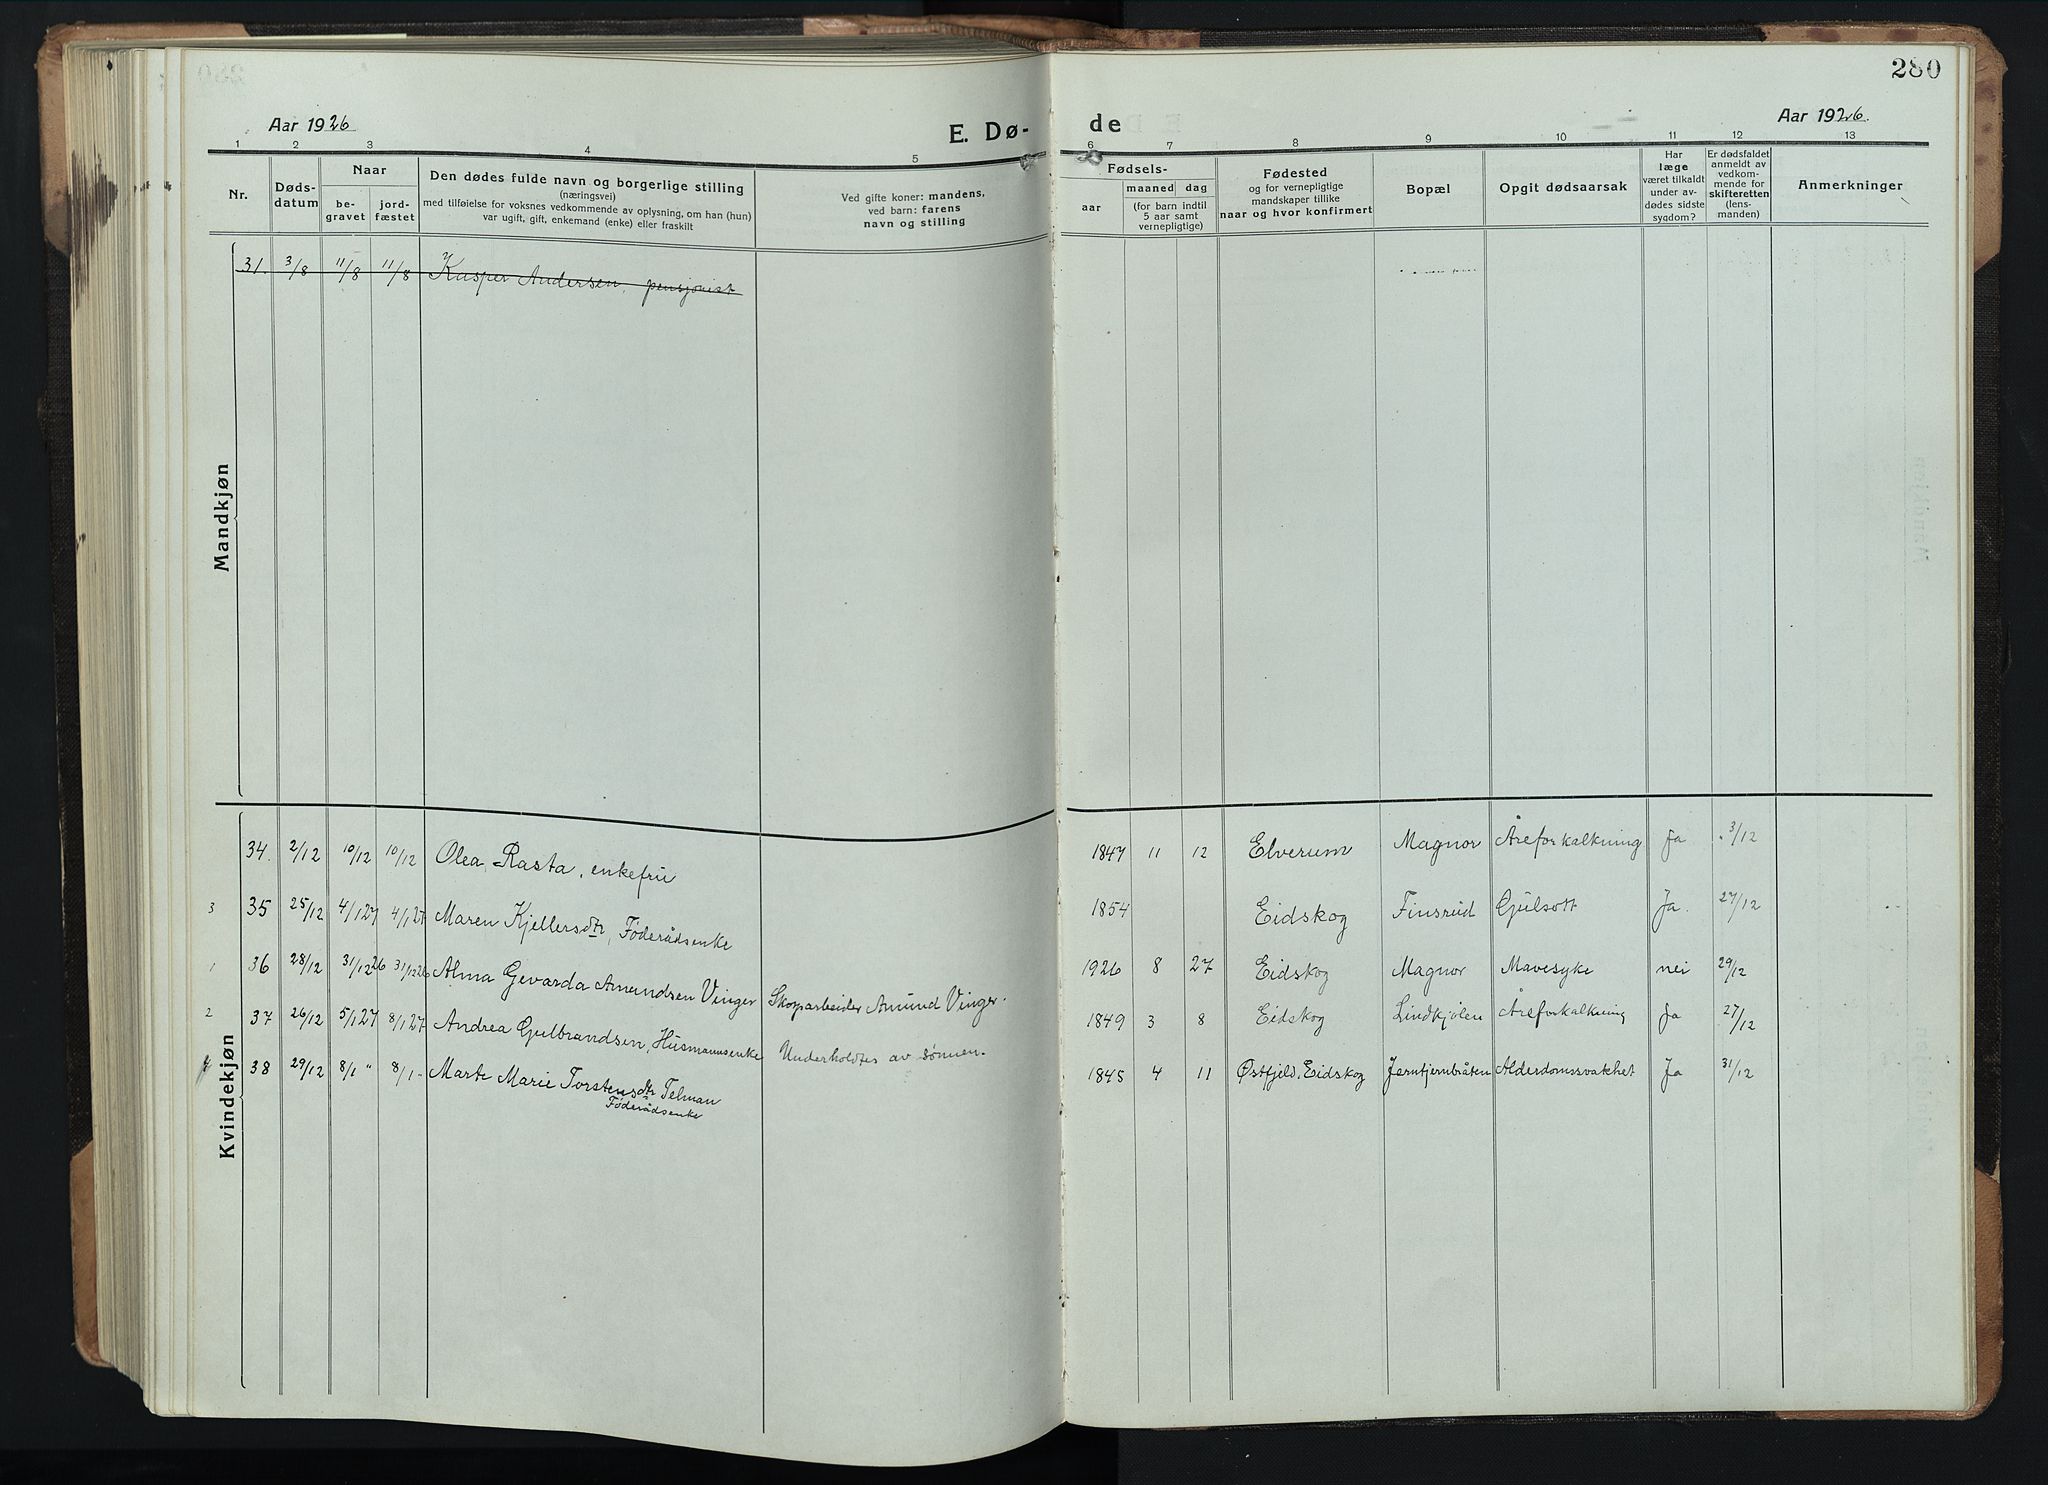 280
Aar 1926
E. Dø-
de
Aar 1926.
1 2 3 4 5 6 7 8 9 10 11 12 13
Nr.
Døds-
datum
Naar
be-
gravet
jord-
fæstet
Den dødes fulde navn og borgerlige stilling
(næringsvei)
med tilføielse for voksnes vedkommende av oplysning, om han (hun)
var ugift, gift, enkemand (enke) eller fraskilt
Ved gifte koner: mandens,
ved barn: farens
navn og stilling
Fødsels-
aar
maaned dag
(for barn indtil
5 aar samt
vernepligtige)
Fødested
og for vernepligtige
mandskaper tillike
naar og hvor konfirmert
Bopæl
Opgit dødsaarsak
Har
læge
været tilkaldt
under av-
dødes sidste
sygdom?
Er dødsfaldet
anmeldt av
vedkom-
mende for
skifteretten
(lens-
manden)
Anmerkninger
Mandkjøn
31. 3/8 11/8 11/8 Kasper Andersen, pensjonist
Kvindekjøn
34. 2/12 10/12 10/12 Olea Rasta, enkefru 1847 11 12 Elverum Magnor Åreforkalkning Ja 3/12
3 35 25/12 4/1 27 4/1 27 Maren Kjellersdtr, Føderådsenke 1854 Eidskog Finsrud Gulsott Ja. 27/12
1 36 28/12 31/12 26 31/12 26 Alma Gevarda Amundsen Vinger Skogsarbeider Amund Vinger. 1926 8 27 Eidskog Magnor Mavesyke nei 29/12
2 37 26/12 5/1 27 8/1 27 Andrea Gulbrandsen, Husmannsenke Underholdtes av sønnen. 1849 3 8 Eidskog Lindkjølen Åreforkalkning Ja 27/12
4 38 29/12 8/1 " 8/1 " Marte Marie Torstensdtr Telman 1845 4 11 Østfjeld, Eidskog Jerntjernbråten Alderdomssvakhet Ja 31/12
Føderådsenke